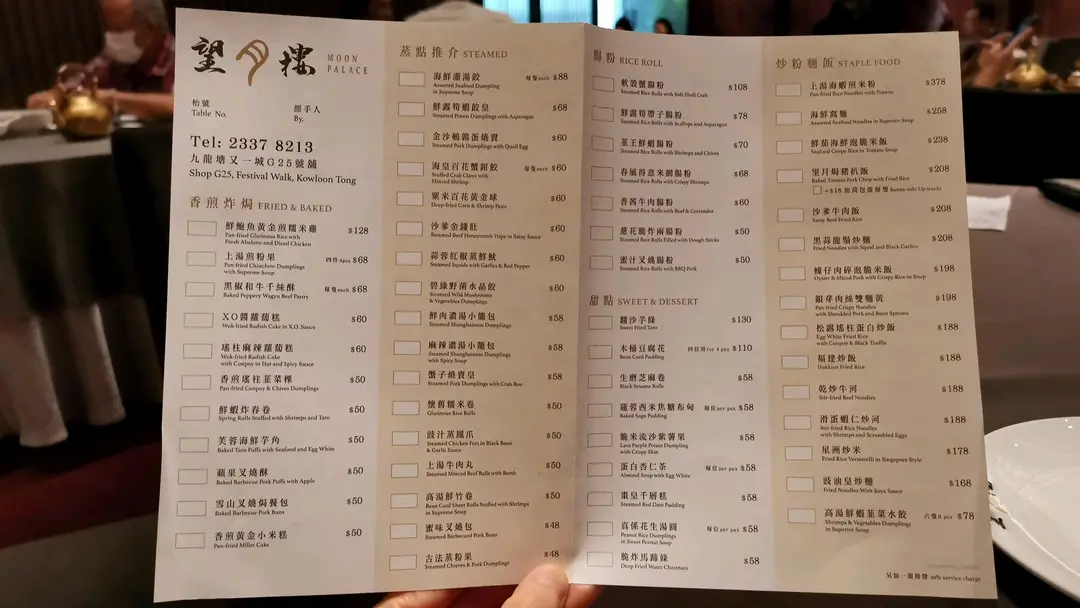 望月樓
MOON
PALACE
枱號
Table No.
經手人
By.
Tel: 2337 8213
九龍塘又一城G25號舖
Shop G25, Festival Walk, Kowloon Tong
香煎炸焗 FRIED & BAKED
鮮鮑魚黃金煎糯米雞 $128
Pan-fried Glutinous Rice with
Fresh Abalone and Diced Chicken
上湯煎粉果 四件4pcs $68
Pan-fried Chiuchow Dumplings
with Supreme Soup
黑椒和牛千絲酥 每隻each $68
Baked Peppery Wagyu Beef Pastry
XO醬蘿蔔糕 $60
Wok-fried Radish Cake in X.O. Sauce
瑤柱麻辣蘿蔔糕 $60
Wok-fried Radish Cake
with Conpoy in Hot and Spicy Sauce
香煎瑤柱韮菜粿 $50
Pan-fried Conpoy & Chives Dumplings
鮮蝦炸春卷 $50
Spring Rolls Stuffed with Shrimps and Taro
芙蓉海鮮芋角 $50
Baked Taro Puffs with Seafood and Egg White
蘋果叉燒酥 $50
Baked Barbecue Pork Puffs with Apple
雪山叉燒焗餐包 $50
Baked Barbecue Pork Buns
香煎黃金小米糕 $50
Pan-fried Millet Cake
蒸點推介 STEAMED
海鮮灌湯餃 每隻each $88
Assorted Seafood Dumpling
in Supreme Soup
鮮露筍蝦餃皇 $68
Steamed Prawn Dumplings with Asparagus
金沙鵪鶉蛋燒賣 $60
Steamed Pork Dumplings with Quail Egg
海皇百花蟹鉗餃 每隻each $60
Stuffed Crab Claws with
Minced Shrimp
粟米百花黃金球 $60
Deep-fried Corn & Shrimp Paste
沙爹金錢肚 $60
Steamed Beef Honeycomb Tripe in Satay Sauce
蒜蓉紅椒蒸鮮魷 $60
Steamed Squids with Garlics & Red Pepper
碧綠野菌水晶餃 $60
Steamed Wild Mushrooms
& Vegetables Dumplings
鮮肉濃湯小籠包 $58
Steamed Shanghainese Dumplings
麻辣濃湯小籠包 $58
Steamed Shanghainese Dumplings
with Spicy Soup
蟹子燒賣皇 $58
Steamed Pork Dumplings with Crab Roe
懷舊糯米卷 $50
Glutinous Rice Rolls
豉汁蒸鳳爪 $50
Steamed Chicken Feet in Black Bean
& Garlic Sauce
上湯牛肉丸 $50
Steamed Minced Beef Balls with Broth
高湯鮮竹卷 $50
Bean Curd Sheet Rolls Stuffed with Shrimps
in Supreme Soup
蜜味叉燒包 $48
Steamed Barbecued Pork Buns
古法蒸粉果 $48
Steamed Chieves & Pork Dumplings
腸粉 RICE ROLL
軟殼蟹腸粉 $108
Steamed Rice Rolls with Soft Shell Crab
鮮露筍帶子腸粉 $78
Steamed Rice Rolls with Scallops and Asparagus
韮王鮮蝦腸粉 $70
Steamed Rice Rolls with Shrimps and Chives
春風得意米網腸粉 $68
Steamed Rice Rolls with Crispy Shrimps
香茜牛肉腸粉 $60
Steamed Rice Rolls with Beef & Coriander
蔥花脆炸兩腸粉 $50
Steamed Rice Rolls Filled with Dough Sticks
蜜汁叉燒腸粉 $50
Steamed Rice Rolls with BBQ Pork
甜點 SWEET & DESSERT
翻沙芋條 $130
Sweet Fried Taro
木桶豆腐花 四位用for 4 pax $110
Bean Curd Pudding
生磨芝麻卷 $58
Black Sesame Rolls
蓮蓉西米焦糖布甸 每位per pax $58
Baked Sago Pudding
脆米流沙紫薯果 $58
Lava Purple Potato Dumpling
with Crispy Skin
蛋白杏仁茶 每位per pax $58
Almond Soup with Egg White
棗皇千層糕 $58
Steamed Red Date Pudding
真係花生湯圓 每位per pax $58
Peanut Rice Dumplings
in Sweet Peanut Soup
脆炸馬蹄條 $58
Deep Fried Water Chestnuts
炒粉麵飯 STAPLE FOOD
上湯海蝦煎米粉 $378
Pan-fried Rice Noodles with Prawns
海鮮窩麵 $258
Assorted Seafood Noodles in Superior Soup
鮮茄海鮮泡脆米飯 $238
Seafood Crispy Rice in Tomato Soup
望月焗豬扒飯 $208
Baked Tomato Pork Chop with Fried Rice
+$18 加荷包蛋 每隻 Sunny-side Up (each)
沙爹牛肉飯 $208
Satay Beef Fried Rice
黑蒜龍鬚炒麵 $208
Fried Noodles with Squid and Black Garlics
蠔仔肉碎泡脆米飯 $198
Oyster & Miced Pork with Crispy Rice in Soup
銀芽肉絲雙麵黃 $198
Pan-fried Crispy Noodles
with Shredded Pork and Bean Sprouts
松露瑤柱蛋白炒飯 $188
Egg White Fried Rice
with Conpoy & Black Truffle
福建炒飯 $188
Hokkien Fried Rice
乾炒牛河 $188
Stir-fried Beef Noodles
滑蛋蝦仁炒河 $188
Stir-fried Rice Noodles
with Shrimps and Scrambled Eggs
星洲炒米 $178
Fried Rice Vermicelli in Singapore Style
豉油皇炒麵 $168
Fried Noodles With Soya Sauce
高湯鮮蝦韮菜水餃 六隻6 pcs $78
Shrimps & Vegetables Dumplings
in Superior Soup
另加一服務費 10% service charge